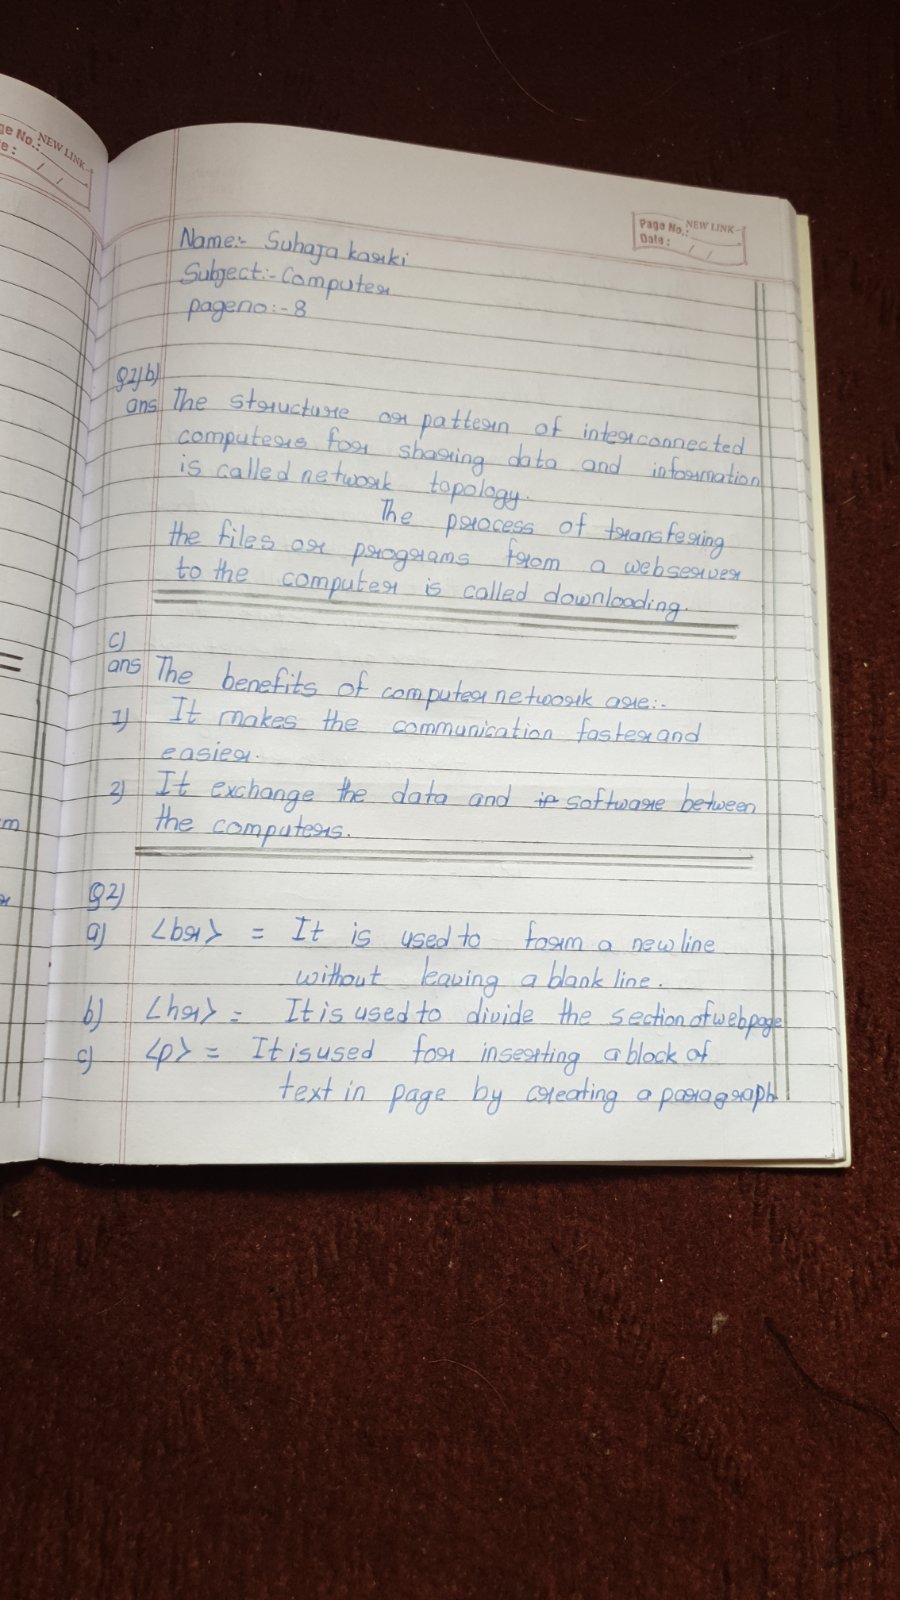 ge No.: NEW LINK
e : / /
Page No.: NEW LINK
Date : / /
Name:- Suhaja karki
Subject:- Computer
pageno:- 8
Q1)b)
ans The structure or pattern of interconnected
computers for sharing data and information
is called network topology.
The process of transfering
the files or programs from a webserver
to the computer is called downloading.
c)
ans The benefits of computer network are:-
1) It makes the communication faster and
easier.
2) It exchange the data and in software between
the computers.
Q2)
a) <br> = It is used to form a new line
without leaving a blank line.
b) <hr> = It is used to divide the section of webpage
c) <p> = It is used for inserting a block of
text in page by creating a paragraph
m